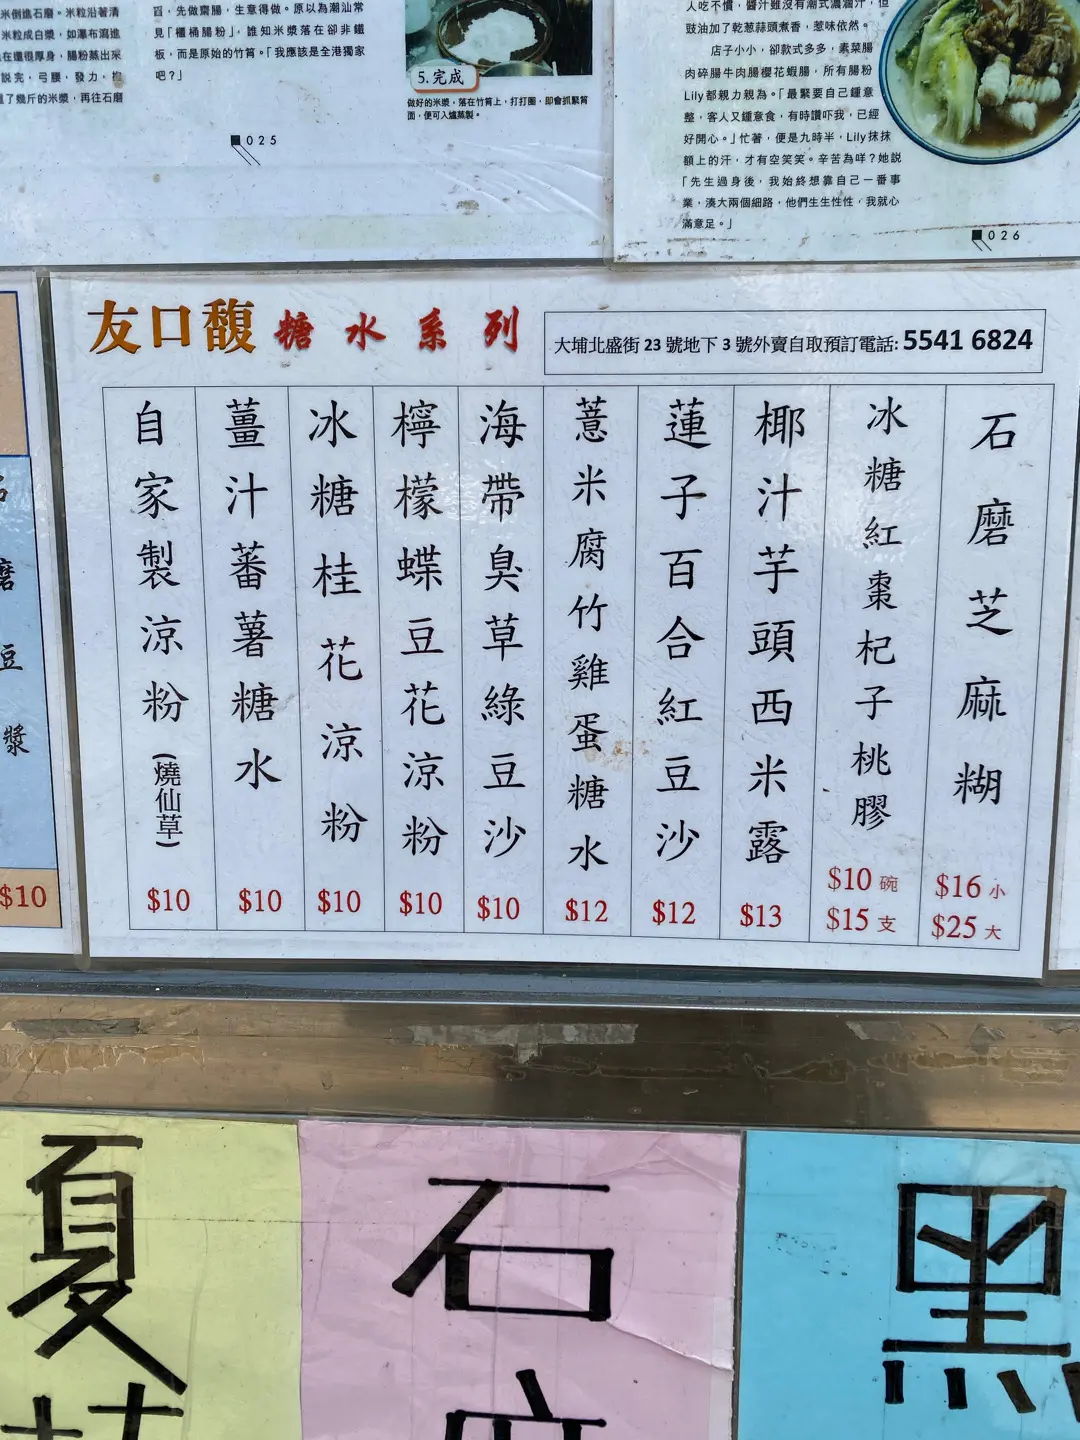 米倒進石磨。米粒沿著清
米成白漿，如瀑布瀉進
在還很厚身，腸粉蒸出采
說完，弓腰，發力，抱
了幾斤的米漿，再往石磨
百，先做齋腸，生意得做。原以為潮汕常
見「櫃桶腸粉」，誰知米漿落在卻非鐵
板，而是原始的竹筲。「我應該是全港獨家
吧？」
025
5.完成
做好的米漿，落在竹筲上，打打圈，即會抓緊筲
面，便可入爐蒸製。
人吃不慣，醬汁雖沒有潮式濃滷汁，但
豉油加了乾葱蒜頭煮香，惹味依然。
店子小小，卻款式多多，素菜腸
肉碎腸牛肉腸櫻花蝦腸，所有腸粉
Lily都親力親為。「最緊要自己鍾意
整，客人又鍾意食，有時讚吓我，已經
好開心。」忙著，便是九時半，Lily抹抹
額上的汗，才有空笑笑。辛苦為咩？她說
「先生過身後，我始終想靠自己一番事
業，湊大兩個細路，他們生生性性，我就心
滿意足。」
026
友口馥 糖水系列
大埔北盛街 23 號地下 3 號外賣自取預訂電話: 5541 6824
石磨芝麻糊
$16 小
$25 大
冰糖紅棗杞子桃膠
$10 碗
$15 支
椰汁芋頭西米露
$13
蓮子百合紅豆沙
$12
薏米腐竹雞蛋糖水
$12
海帶臭草綠豆沙
$10
檸檬蝶豆花涼粉
$10
冰糖桂花涼粉
$10
薑汁蕃薯糖水
$10
自家製涼粉(燒仙草)
$10
磨豆漿
$10
夏
石
黑